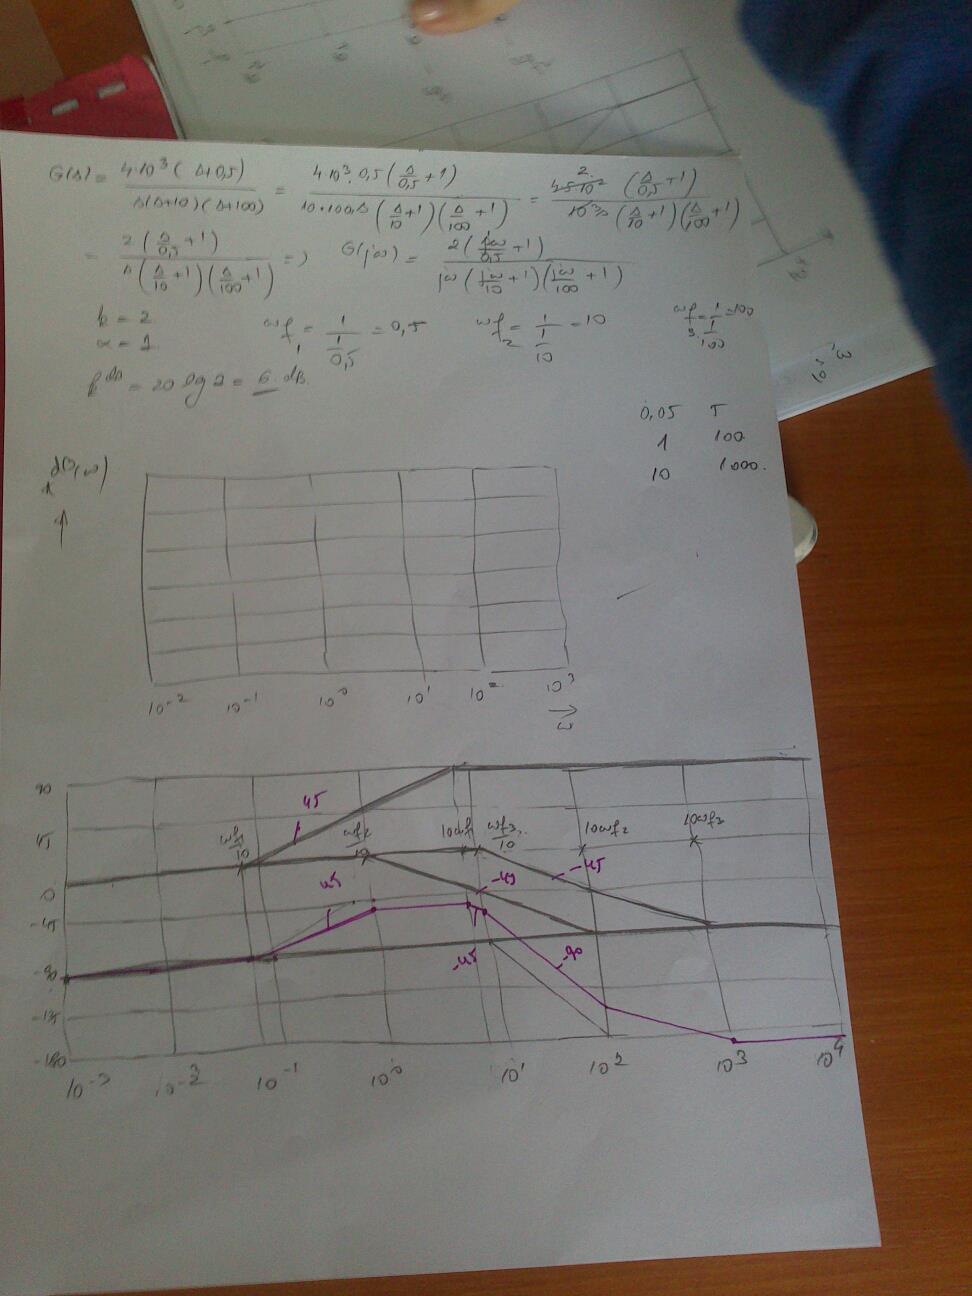 G(s) = 4·10³(s+0,5) / s(s+10)(s+100) = 4·10³·0,5(s/0,5+1) / 10·100s(s/10+1)(s/100+1) = 2 (s/0,5+1) / 10³s(s/10+1)(s/100+1)
= 2(s/0,5+1) / s(s/10+1)(s/100+1) => G(jω) = 2(jω/0,5+1) / jω(jω/10+1)(jω/100+1)
k = 2
α = 1
ωf1 = 1/(1/0,5) = 0,5 ωf2 = 1/(1/10) = 10 ωf3 = 1/(1/100) = 100
k^dB = 20 lg 2 = 6 dB
10³ ω
0,05 5
1 100
10 1000.
10⁻² 10⁻¹ 10⁰ 10¹ 10² 10³
ω
90
45
45 ωf1/10 ωf2/10 10ωf1 ωf3/10 10ωf2 10ωf3
0 45 -45 -45
-45
-90 -45 -90
-135
-180
10⁻³ 10⁻² 10⁻¹ 10⁰ 10¹ 10² 10³ 10⁴